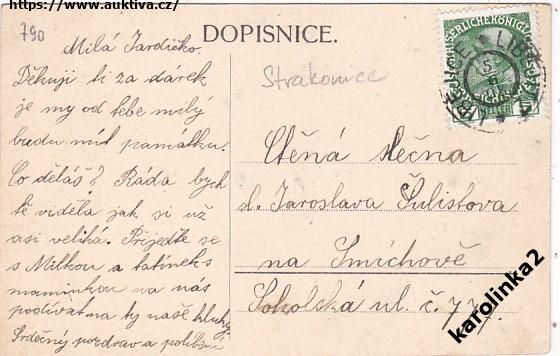 https://www.auktiva.cz/
790
DOPISNICE.
Strakonice
Milá Jardičko.
Děkuji ti za dárek
je my od tebe milý
budu mít památku.
Co děláš? Ráda bych
tě viděla jak si už
asi veliká. Přijeďte se
s Milkou a tatínek s
maminkou na nás
podívat na ty naše kluky
Srdečný pozdrav a políbení
Ctěná slečna
sl. Jaroslava Šulistova
na Smíchově
Sokolská ul. č. 77
LIBĚJICE
5
6
HELLER
karolinka2